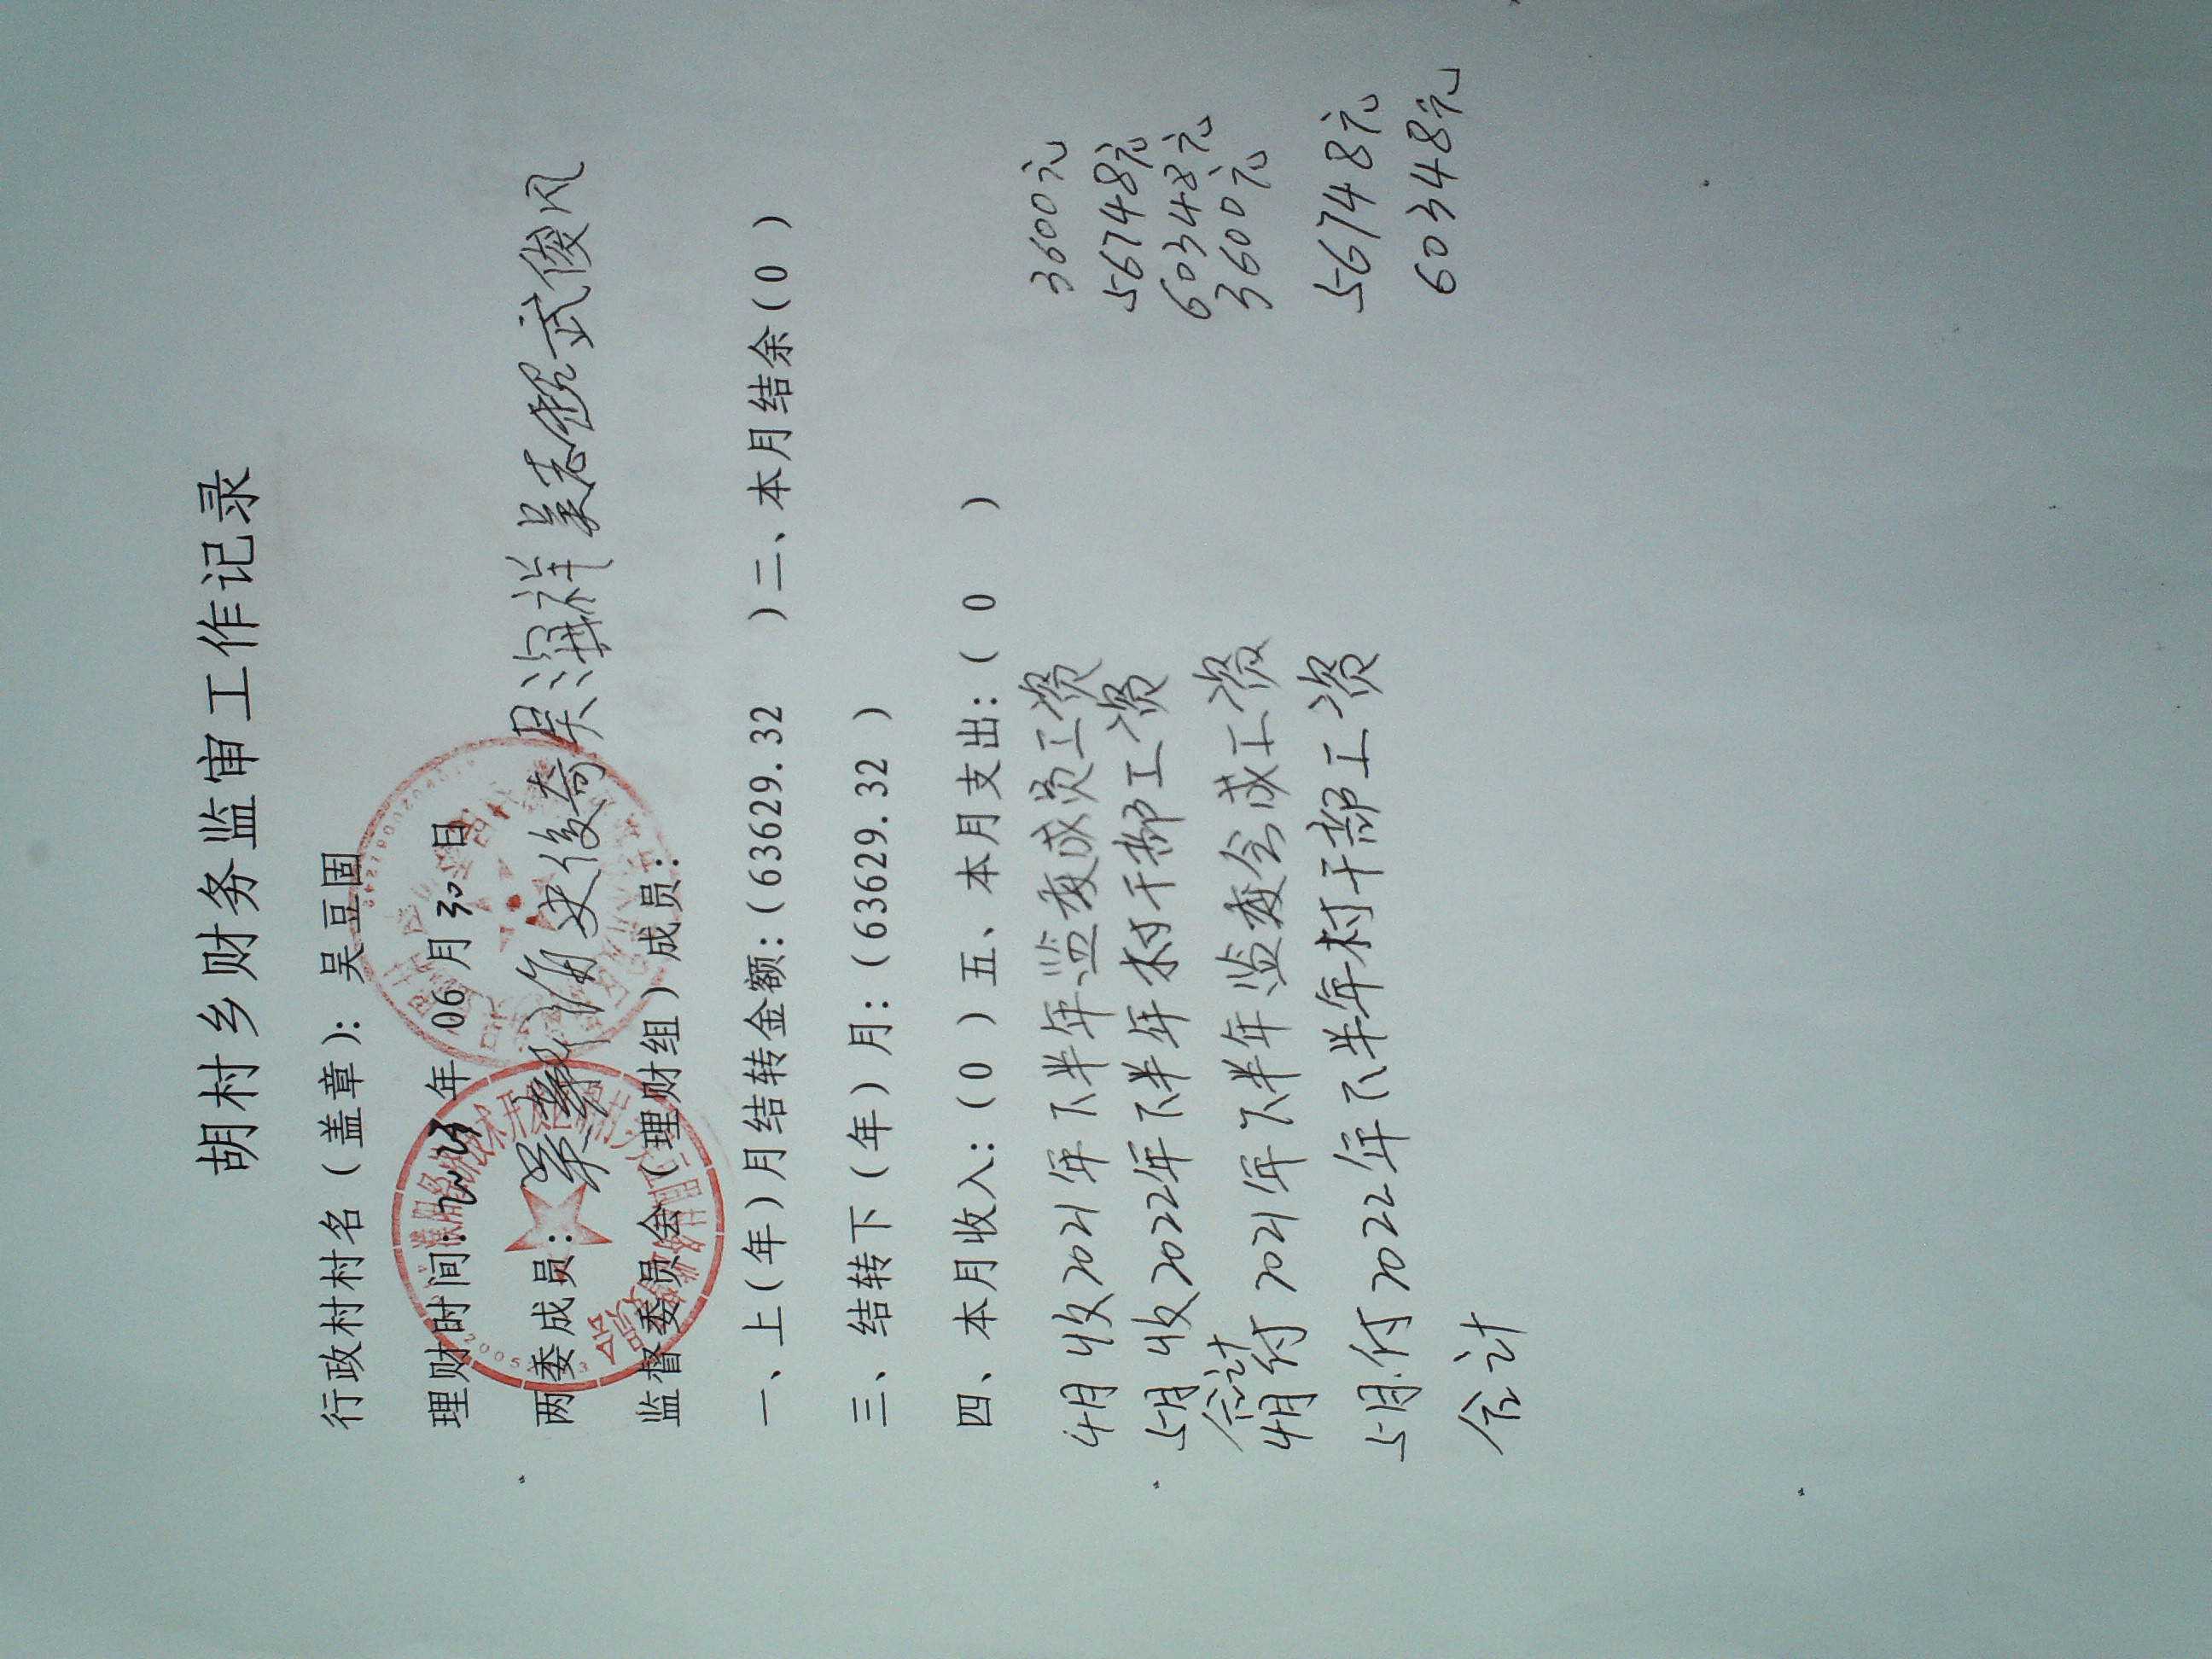 胡村乡财务监审工作记录
行政村村名（盖章）：吴豆固
理财时间：2023年 06 月 30 日
两委成员： 史俊奇 吴海祥 吴志彬 武俊风
监督委员会（理财组）成员：
一、上(年)月结转金额：(63629.32 )二、本月结余(0 )
三、结转下（年）月：(63629.32 )
四、本月收入：(0 )五、本月支出：( 0 )
4月收2021年下半年监委成员工资 3600元
5月收2022年下半年村干部工资 56748元
合计 60348元
4月付2021年下半年监委会成工资 3600元
5月付2022年下半年村干部工资 56748元
合计 60348元